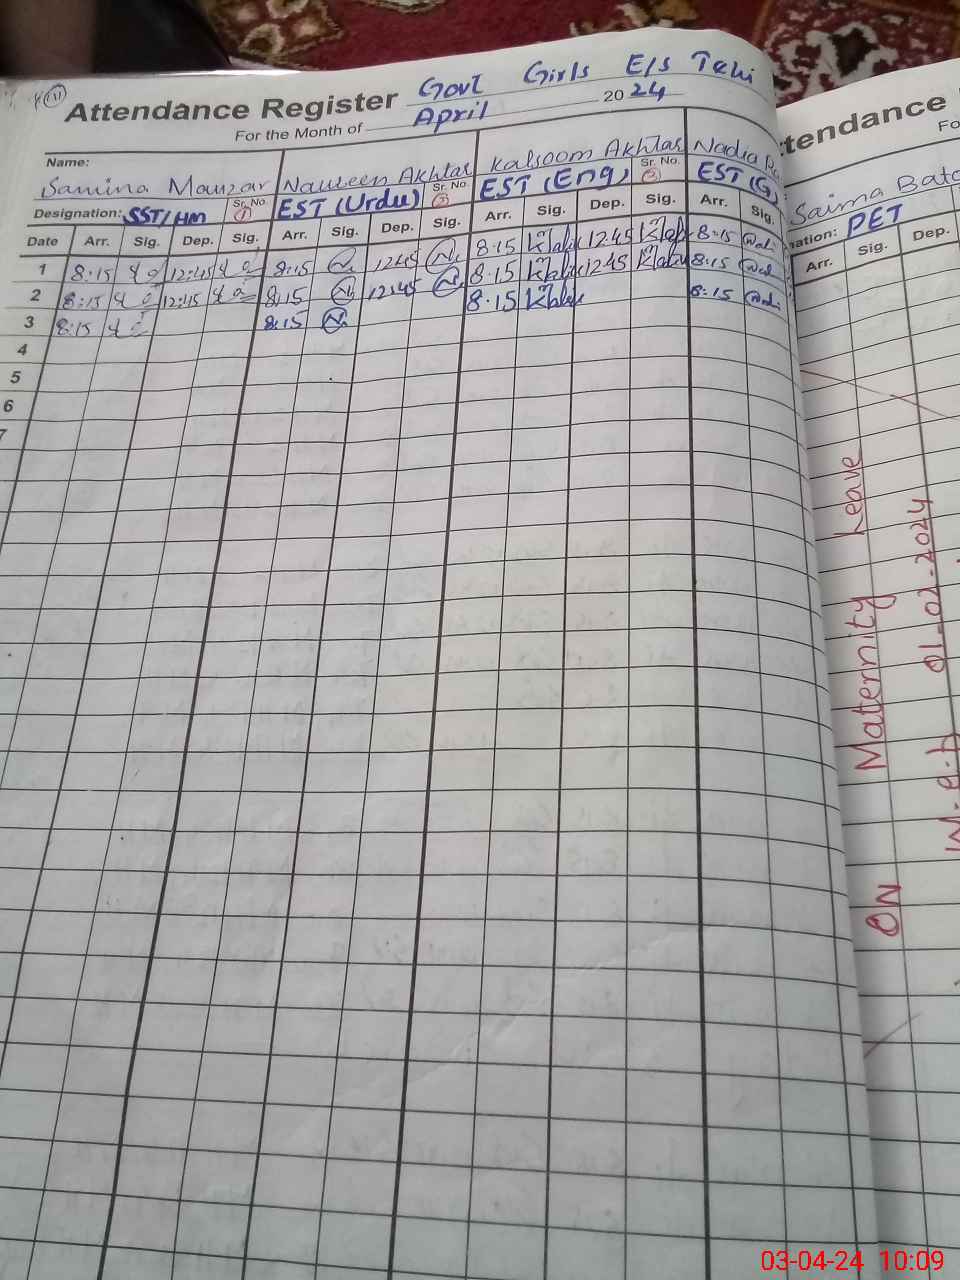 Attendance Register Govt Girls E/S Tehi
For the Month of April 2024
Name:
Samina Manzar Naureen Akhtar Kalsoom Akhtar Nadia
Designation: SST/HM Sr. No. 1 EST (Urdu) Sr. No. EST (Eng) Sr. No. EST (G)
Date Arr. Sig. Dep. Sig. Arr. Sig. Dep. Sig. Arr. Sig. Dep. Sig. Arr. Sig.
1 8:15 12:45 8:15 12:45 8:15 12:45 8:15
2 8:15 12:45 8:15 12:45 8:15 12:45 8:15
3 8:15 8:15 8:15 8:15
4
5
6
7
tendance
Fo
Saima Bato
nation: PET
Arr. Sig. Dep.
ON Maternity Leave
W.e.f 01-02-2024
03-04-24 10:09